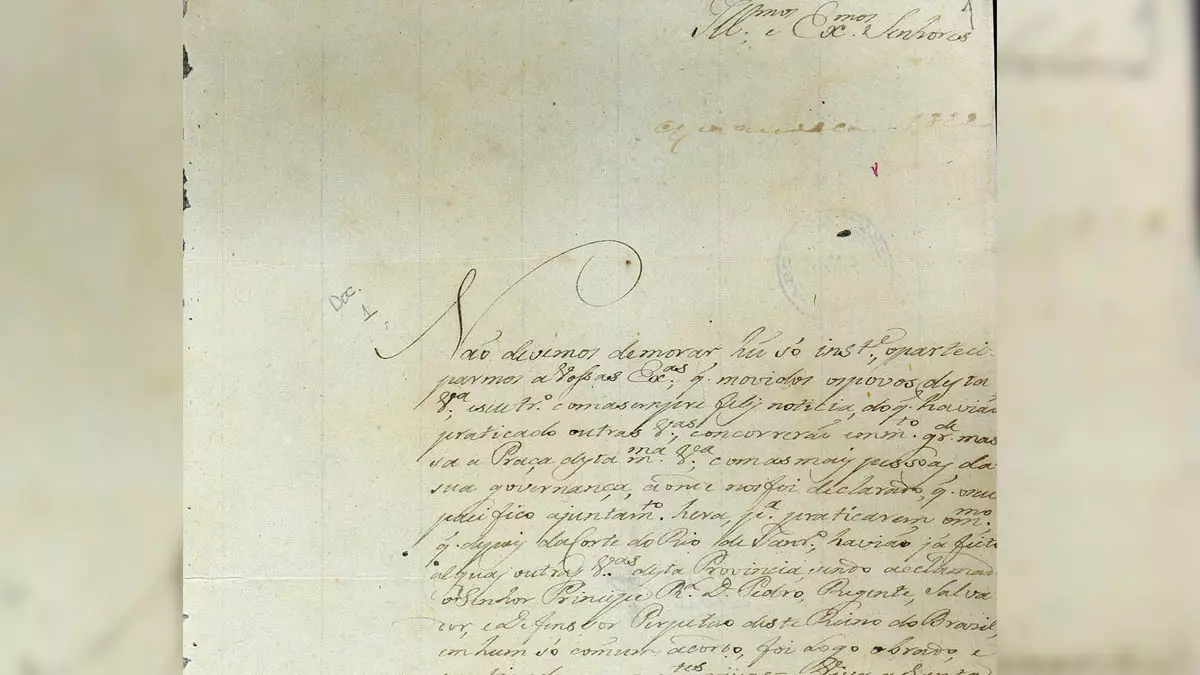 Ill.mos e Ex.mos Senhores
1822
Doc.
1
Não devemos demorar hũ só inst.e, o parteci-
parmos a Vossas Ex.as, q. movidos os povos desta
V.a, e seu tr.o com a sempre feliz noticia, do q. havião
praticado outras V.as, concorrerão em m.to gr.de mas-
sa a Praça desta m.ma V.a, com as mais pessoas da
sua governança, aonde nos foi declarado, q. o seu
pacifico ajuntam.to hera, p.a praticarem o m.mo
q. depois da Corte do Rio de Janr.o, havião já feito
algũas outras V.as desta Provincia, sendo acclamado
o Senhor Principe R.l D. Pedro, Regente, Salva
dor, e Defensor Perpetuo deste Reino do Brasil,
em hum só comum acordo, foi logo obrado, e
Viva a Santa